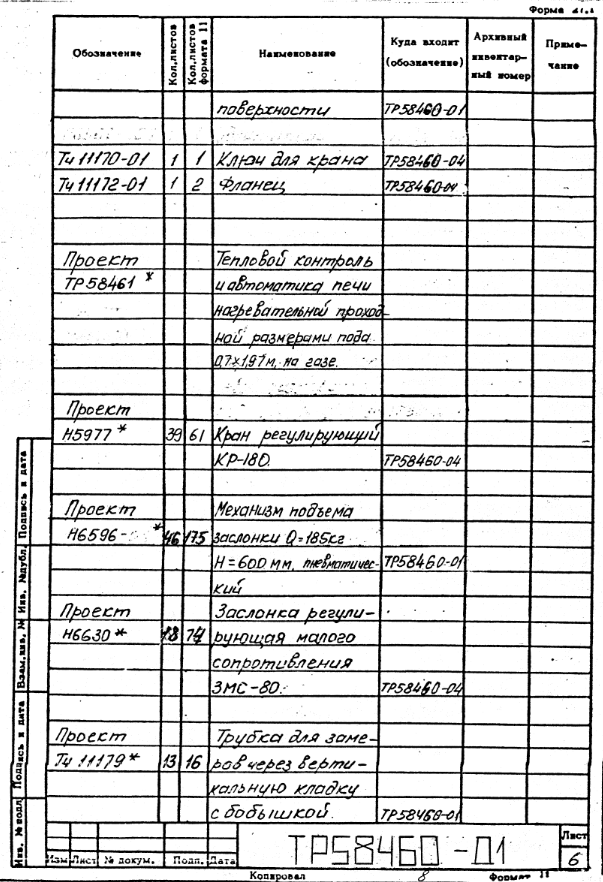 Форма 21.1
Обозначение | Кол.листов | Кол.листов формата 11 | Наименование | Куда входит (обозначение) | Архивный инвентар-ный номер | Приме-чание
поверхности | ТР58460-01
Тч 11170-01 | 1 | 1 | Ключ для крана | ТР58460-04
Тч 11172-01 | 1 | 2 | Фланец | ТР58460-04
Проект | Тепловой контроль
ТР58461 * | и автоматика печи
нагревательной проход-
ной размерами пода
0,7×1,97м, на газе.
Проект
Н5977 * | 39 | 61 | Кран регулирующий
КР-180. | ТР58460-04
Проект | Механизм подъема
Н6596- * | 46 | 175 | заслонки Q=185кг
Н=600 мм, пневматичес- | ТР58460-01
кий
Проект | Заслонка регули-
Н6630 * | 18 | 74 | рующая малого
сопротивления
ЗМС-80. | ТР58460-04
Проект | Трубка для заме-
Тч 11179 * | 13 | 16 | ров через верти-
кальную кладку
с бобышкой. | ТР58460-01
Инв. № подл. | Подпись и дата | Взам.инв. № | Инв. №дубл. | Подпись и дата
ТР58460-01
Лист
6
Изм | Лист | № докум. | Подп. | Дата
Копировал
8
Формат 11